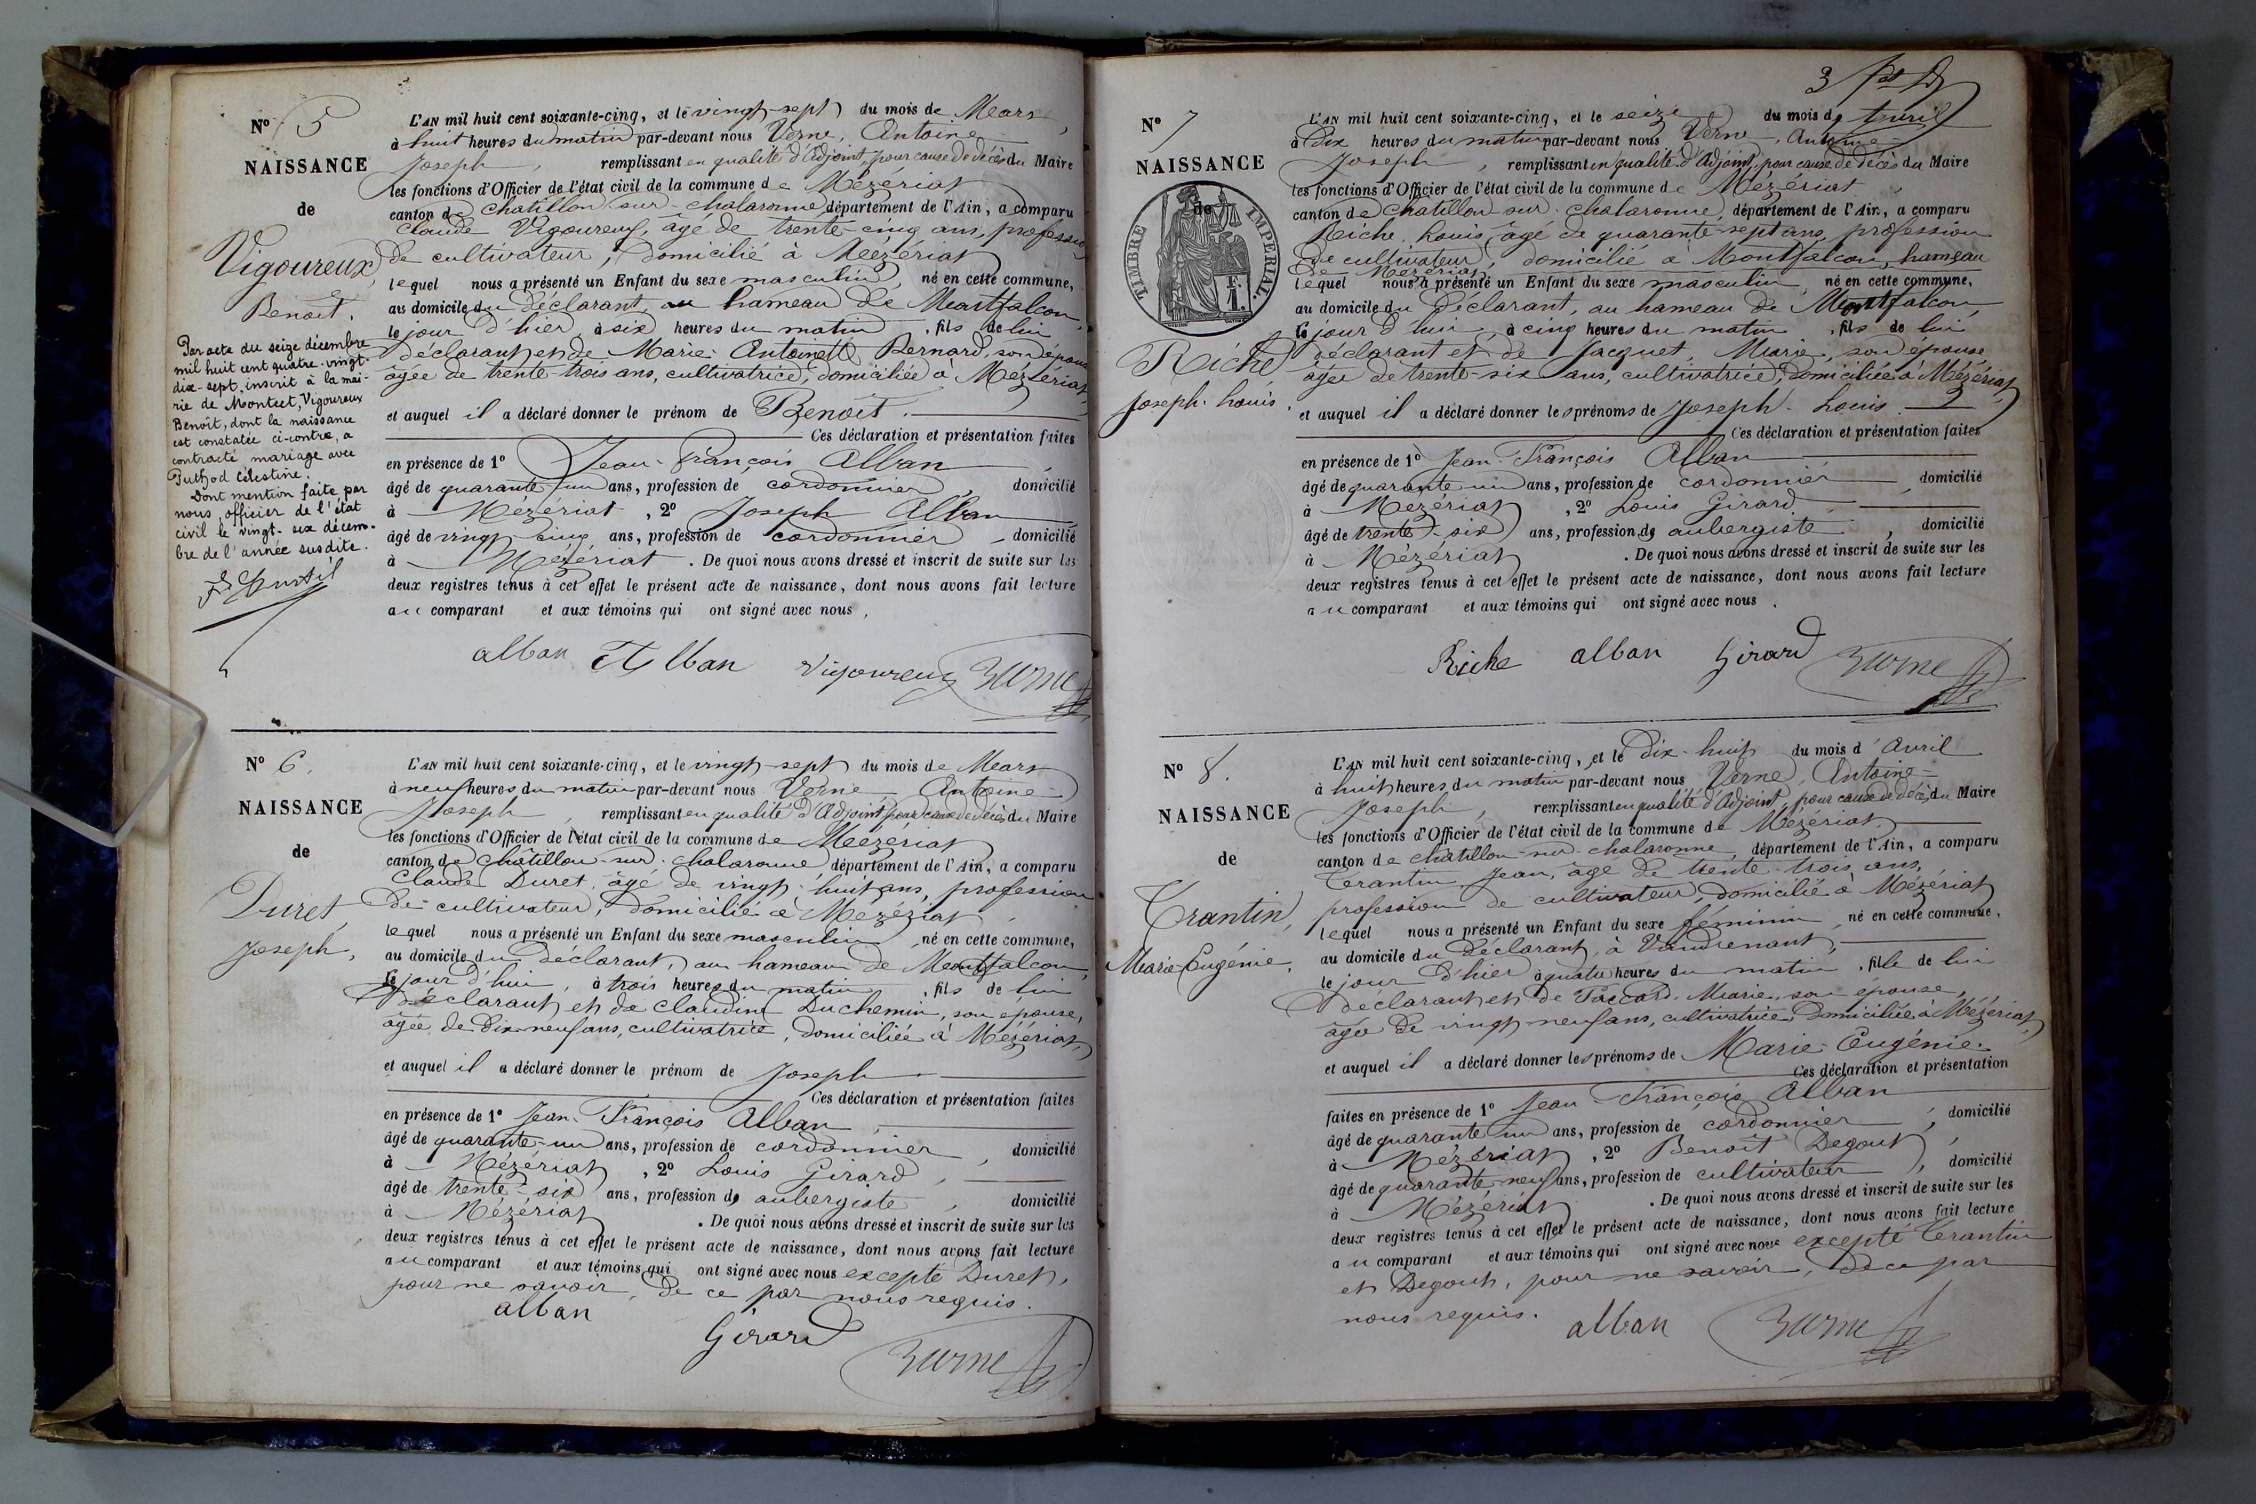 N° 5
NAISSANCE
de
Vigoureux,
Benoît.
Par acte du seize décembre
mil huit cent quatre-vingt-
dix-sept, inscrit à la mai-
rie de Montcet, Vigoureux
Benoît, dont la naissance
est constatée ci-contre, a
contracté mariage avec
Puthod Célestine.
Dont mention faite par
nous, officier de l'état
civil le vingt-six décem-
bre de l'année susdite.
L'AN mil huit cent soixante-cinq, et le vingt-sept du mois de Mars,
à huit heures du matin par-devant nous Verne, Antoine
Joseph, remplissant en qualité d'Adjoint, pour cause de décès du Maire
les fonctions d'Officier de l'état civil de la commune de Mézériat
canton de Chatillon-sur-chalaronne, département de l'Ain, a comparu
Claude Vigoureux, âgé de trente-cinq ans, profession
de cultivateur, domicilié à Mézériat
lequel nous a présenté un Enfant du sexe masculin, né en cette commune,
au domicile du déclarant, au hameau de Montfalcon,
le jour d'hier, à six heures du matin, fils de lui
déclarant et de Marie-Antoinette Bernard, son épouse
âgée de trente-trois ans, cultivatrice, domiciliée à Mézériat,
et auquel il a déclaré donner le prénom de Benoît.
Ces déclaration et présentation faites
en présence de 1° Jean-François Alban,
âgé de quarante-un ans, profession de cordonnier, domicilié
à Mézériat, 2° Joseph Alban
âgé de vingt-cinq ans, profession de cordonnier, domicilié
à Mézériat. De quoi nous avons dressé et inscrit de suite sur les
deux registres tenus à cet effet le présent acte de naissance, dont nous avons fait lecture
au comparant et aux témoins qui ont signé avec nous.
alban Alban Vigoureux Verne
N° 6.
NAISSANCE
de
Duret,
Joseph,
L'AN mil huit cent soixante-cinq, et le vingt-sept du mois de Mars
à neuf heures du matin par-devant nous Verne, Antoine
Joseph, remplissant en qualité d'Adjoint pour cause de décès du Maire
les fonctions d'Officier de l'état civil de la commune de Mézériat
canton de Châtillon-sur-chalaronne, département de l'Ain, a comparu
Claude Duret, âgé de vingt-huit ans, profession
de cultivateur, domicilié à Mézériat,
lequel nous a présenté un Enfant du sexe masculin, né en cette commune,
au domicile du Déclarant, au hameau de Montfalcon,
le jour d'hui, à trois heures du matin, fils de lui
Déclarant et de Claudine Duchemin, son épouse,
âgée de dix-neuf ans, cultivatrice, domiciliée à Mézériat,
et auquel il a déclaré donner le prénom de Joseph.
Ces déclaration et présentation faites
en présence de 1° Jean-François Alban,
âgé de quarante-un ans, profession de cordonnier, domicilié
à Mézériat, 2° Louis Girard,
âgé de trente-six ans, profession de aubergiste, domicilié
à Mézériat. De quoi nous avons dressé et inscrit de suite sur les
deux registres tenus à cet effet le présent acte de naissance, dont nous avons fait lecture
au comparant et aux témoins qui ont signé avec nous excepté Duret,
pour ne savoir, de ce par nous requis.
alban
Girard
Verne
3
N° 7
NAISSANCE
de
TIMBRE IMPERIAL.
1 F.
Riche
Joseph-Louis.
L'AN mil huit cent soixante-cinq, et le seize du mois d'avril
à Dix heures du matin par-devant nous Verne, Antoine
Joseph, remplissant en qualité d'Adjoint, pour cause de décès du Maire
les fonctions d'Officier de l'état civil de la commune de Mézériat,
canton de Chatillon-sur-chalaronne, département de l'Ain, a comparu
Riche Louis, âgé de quarante-sept ans, profession
de cultivateur, domicilié à Montfalcon, hameau
de Mézériat,
lequel nous a présenté un Enfant du sexe masculin, né en cette commune,
au domicile du Déclarant, au hameau de Montfalcon,
le jour d'hui, à cinq heures du matin, fils de lui
déclarant et de Jacquet, Marie, son épouse,
âgée de trente-six ans, cultivatrice, domiciliée à Mézériat,
et auquel il a déclaré donner les prénoms de Joseph-Louis.
Ces déclaration et présentation faites
en présence de 1° Jean-François Alban
âgé de quarante-un ans, profession de cordonnier, domicilié
à Mézériat, 2° Louis Girard,
âgé de trente-six ans, profession de aubergiste, domicilié
à Mézériat. De quoi nous avons dressé et inscrit de suite sur les
deux registres tenus à cet effet le présent acte de naissance, dont nous avons fait lecture
au comparant et aux témoins qui ont signé avec nous.
Riche alban Girard Verne
N° 8.
NAISSANCE
de
Terantin,
Marie-Eugénie.
L'AN mil huit cent soixante-cinq, et le Dix-huit du mois d'Avril
à huit heures du matin par-devant nous Verne, Antoine
Joseph, remplissant en qualité d'Adjoint, pour cause de décès du Maire
les fonctions d'Officier de l'état civil de la commune de Mézériat
canton de châtillon-sur-chalaronne, département de l'Ain, a comparu
Terantin Jean, âgé de trente-trois ans,
profession de cultivateur, domicilié à Mézériat
lequel nous a présenté un Enfant du sexe féminin, né en cette commune,
au domicile du Déclarant, à Vandrenant,
le jour d'hier à quatre heures du matin, fille de lui
déclarant et de Paccard Marie, son épouse,
âgée de vingt-neuf ans, cultivatrice, Domiciliée à Mézériat,
et auquel il a déclaré donner les prénoms de Marie-Eugénie.
Ces déclaration et présentation
faites en présence de 1° Jean-François Alban
âgé de quarante-un ans, profession de cordonnier, domicilié
à Mézériat, 2° Benoît Degout,
âgé de quarante-neuf ans, profession de cultivateur, domicilié
à Mézériat. De quoi nous avons dressé et inscrit de suite sur les
deux registres tenus à cet effet le présent acte de naissance, dont nous avons fait lecture
au comparant et aux témoins qui ont signé avec nous excepté Terantin
et Degout, pour ne savoir, de ce par
nous requis.
alban Verne